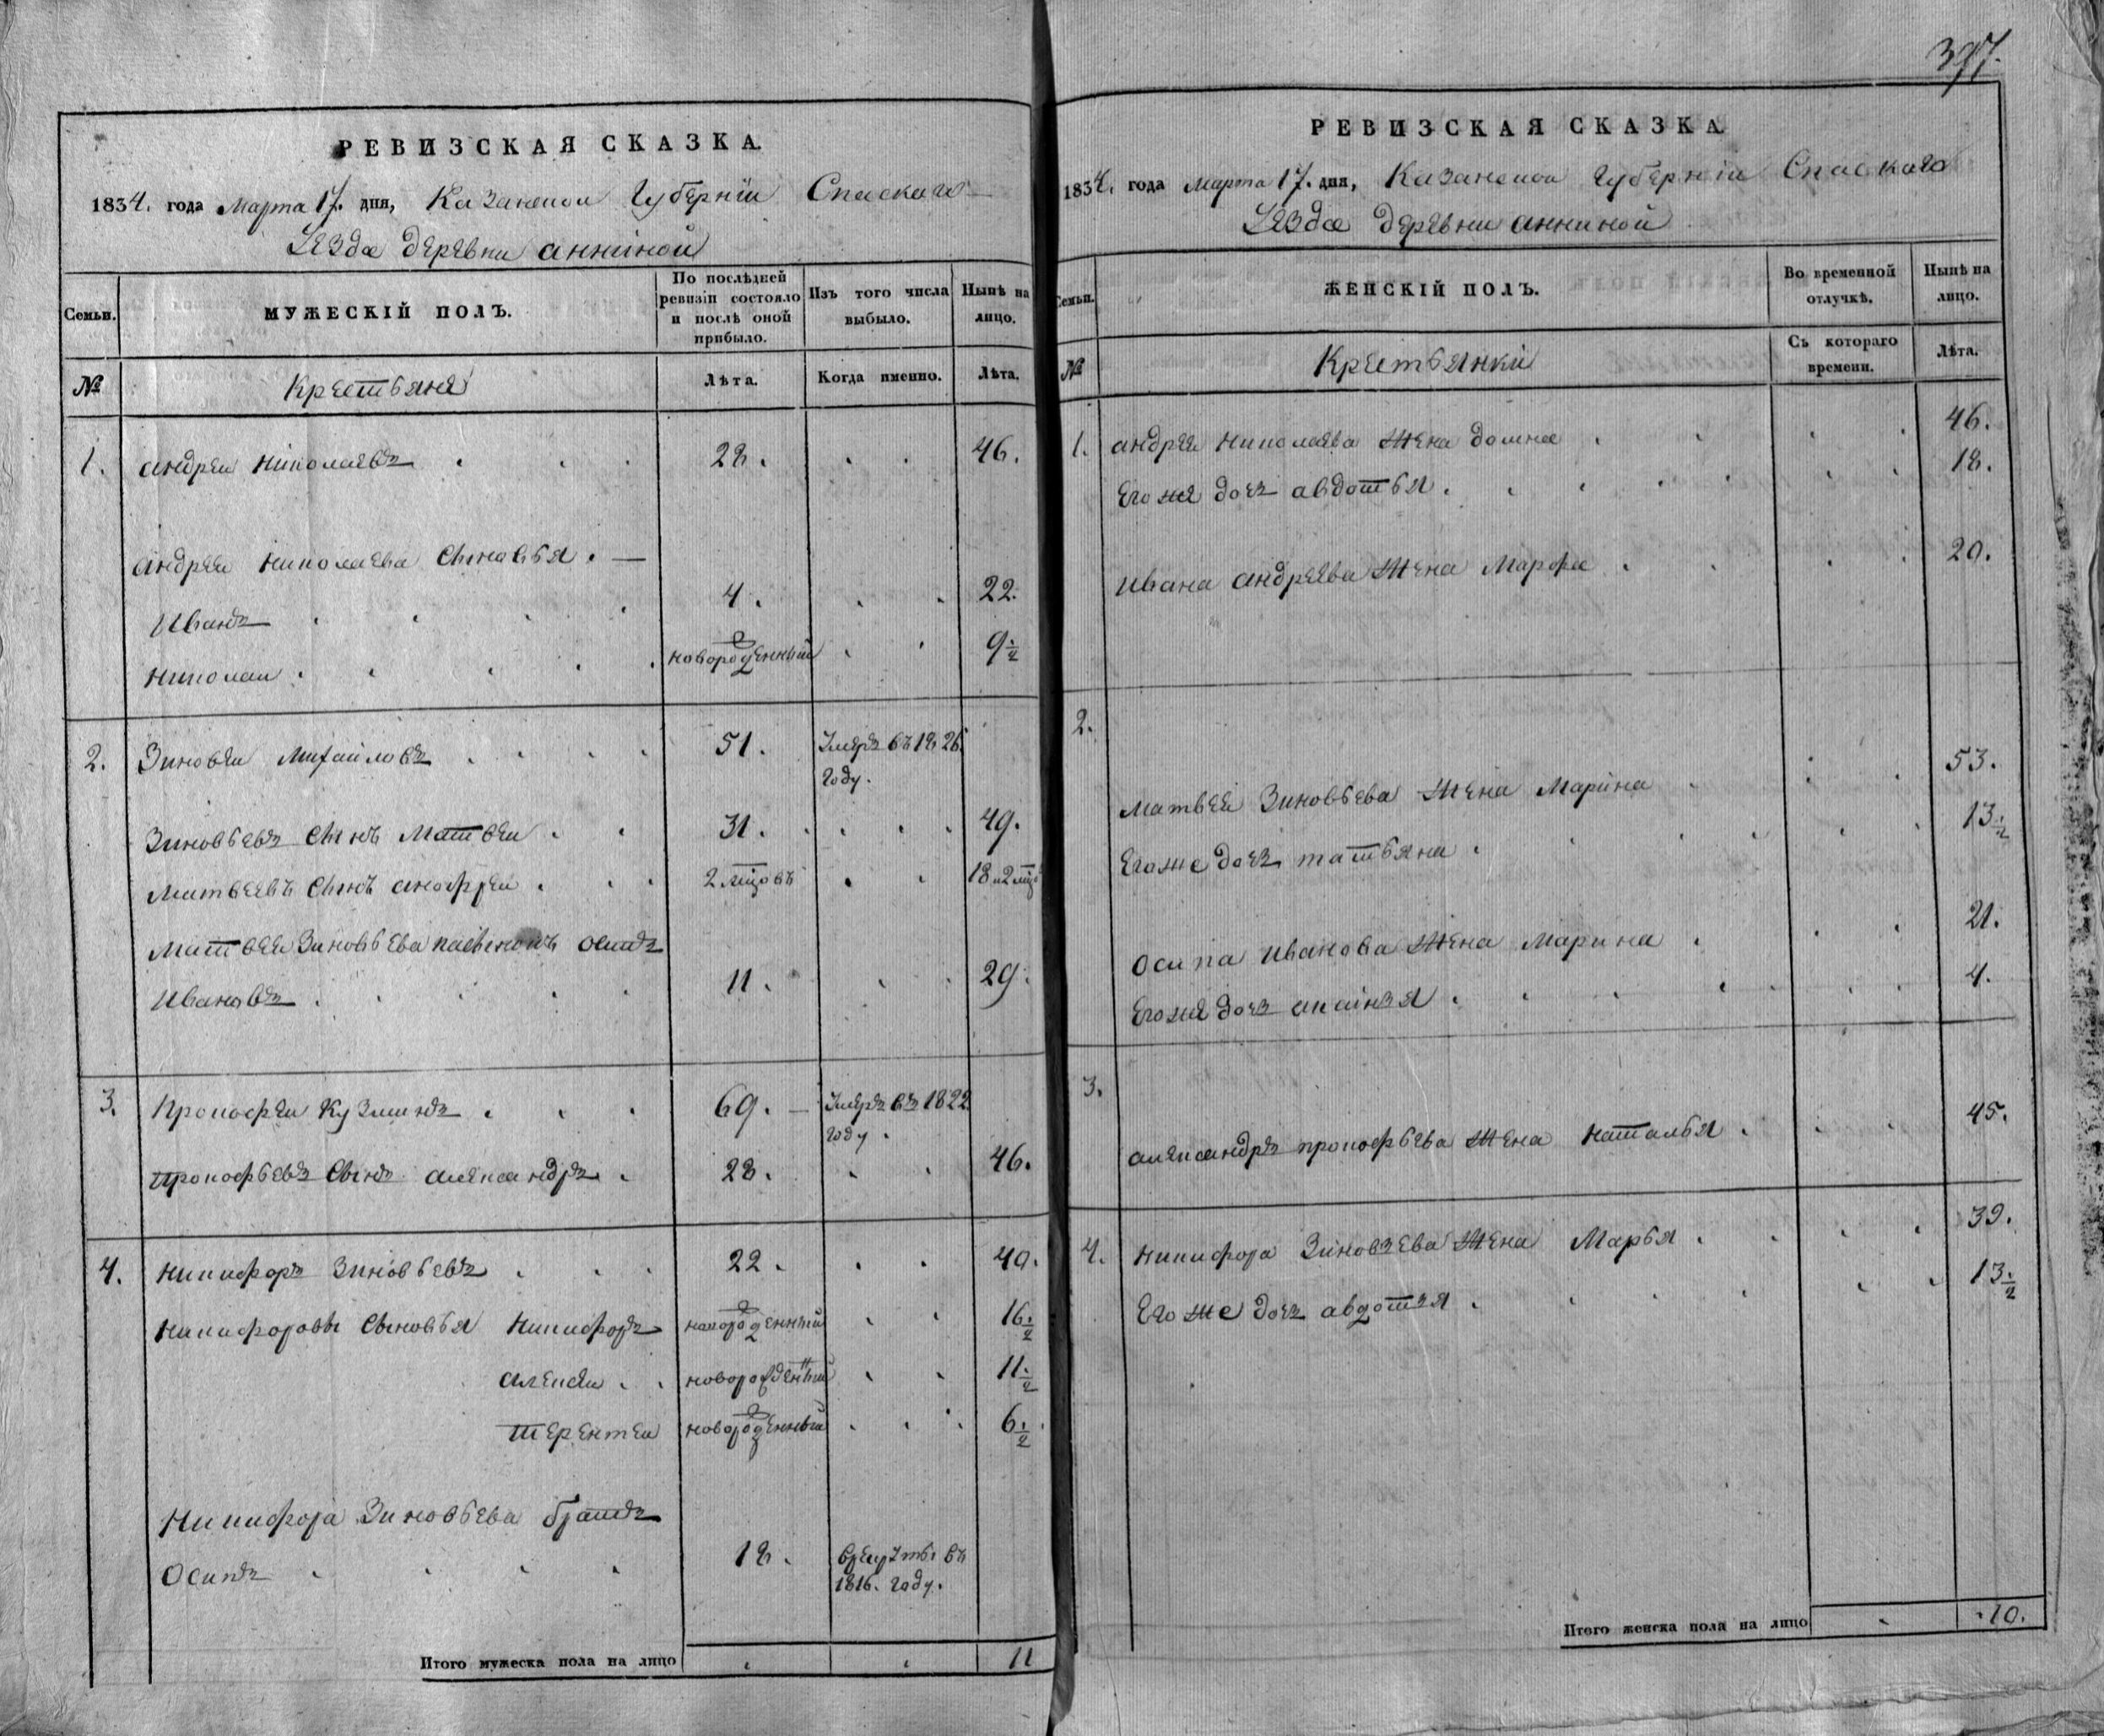 397.
РЕВИЗСКАЯ СКАЗКА.
1834. года Марта 17. дня, Казанской Губерніи Спаскаго
Уезда деревни аннiной
Семьи. МУЖЕСКІЙ ПОЛЪ. По послѣдней ревизіи состояло и послѣ оной прибыло. Изъ того числа выбыло. Нынѣ на лицо.
№ Крестьяне Лѣта. Когда именно. Лѣта.
1. андреи николаевъ 28. 46.
андреи николаева сыновья.
Иванъ 4. 22.
николаи новорожденный 9 1/2
2. Зиновеи Михайловъ 51. Умеръ въ 1826 году.
Зиновьевъ сынъ Матвеи 31. 49.
Матвеевъ сынъ анофреи 2 мцовъ 18 и 2 мцо
Матвея Зиновьева пасынокъ осипъ
Ивановъ 11. 29.
3. Прокофеи Кузминъ 69. Умеръ въ 1822 году.
прокофьевъ сынъ александръ 28. 46.
4. никифоръ Зиновьевъ 22. 40.
никифоровы сыновья никифоръ новорожденный 16 1/2
алексеи новорожденный 11 1/2
терентеи новорожденный 6 1/2
Никифора Зиновьева братъ
Осипъ 18. врекруты въ 1816. году.
Итого мужеска пола на лицо 11
РЕВИЗСКАЯ СКАЗКА.
1834. года марта 17. дня, Казанской губерніи Спаскаго
Уезда деревни анниной
Семьи. ЖЕНСКІЙ ПОЛЪ. Во временной отлучкѣ. Нынѣ на лицо.
№ Крестьянки Съ котораго времени. Лѣта.
1. андреи николаева жена домна 46.
Его же дочь авдотья 18.
Ивана андреева жена Марфа 20.
2.
матвеи Зиновьева жена Марина 53.
Его же дочь татьяна 13 1/2
осипа иванова жена Марина 21.
Его же дочь 4.
3.
александръ прокофьева жена наталья 45.
4. никифора Зиновьева жена Марья 39.
Его же дочь авдотья 13 1/2
Итого женска пола на лицо 10.